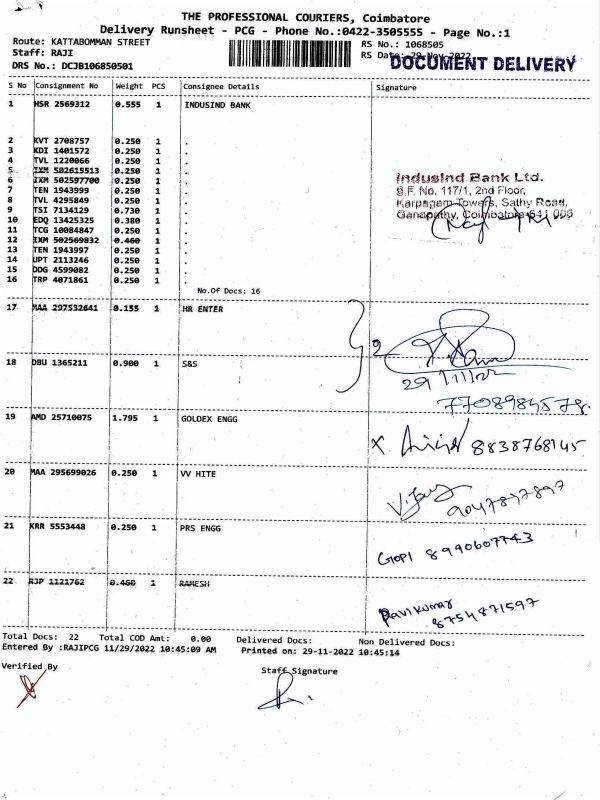 THE PROFESSIONAL COURIERS, Coimbatore
Delivery Runsheet - PCG - Phone No.:0422-3505555 - Page No.:1
Route: KATTABOMMAN STREET
RS No.: 1068505
Staff: RAJI
RS Date: 29-Nov-2022
DOCUMENT DELIVERY
DRS No.: DCJB106850501
S No Consignment No Weight PCS Consignee Details Signature
1 HSR 2569312 0.555 1 INDUSIND BANK
2 KVT 2708757 0.250 1 .
3 KDI 1401572 0.250 1 .
4 TVL 1220066 0.250 1 .
5 IXM 502615513 0.250 1 .
6 IXM 502597700 0.250 1 .
7 TEN 1943999 0.250 1 .
8 TVL 4295849 0.250 1 .
9 TSI 7134129 0.730 1 .
10 EDQ 13425325 0.380 1 .
11 TCG 10084847 0.250 1 .
12 IXM 502569832 0.460 1 .
13 TEN 1943997 0.250 1 .
14 UPT 2113246 0.250 1 .
15 DDG 4599082 0.250 1 .
16 TRP 4071861 0.250 1 .
IndusInd Bank Ltd.
S.F. No. 117/1, 2nd Floor,
Karpagam Towers, Sathy Road,
Ganapathy, Coimbatore-641 006
No.Of Docs: 16
17 MAA 297532641 0.155 1 HR ENTER
2
18 DBU 1365211 0.900 1 S&S
29/11/22
7708984578.
19 AMD 25710075 1.795 1 GOLDEX ENGG
X 8838768145
20 MAA 295699026 0.250 1 VV HITE
Vijay
9047877897
21 KRR 5553448 0.250 1 PRS ENGG
Gopi 8990607743
22 RJP 1121762 0.460 1 RAMESH
Ravikumar
8754871597
Total Docs: 22 Total COD Amt: 0.00 Delivered Docs: Non Delivered Docs:
Entered By :RAJIPCG 11/29/2022 10:45:09 AM Printed on: 29-11-2022 10:45:14
Verified By
Staff Signature